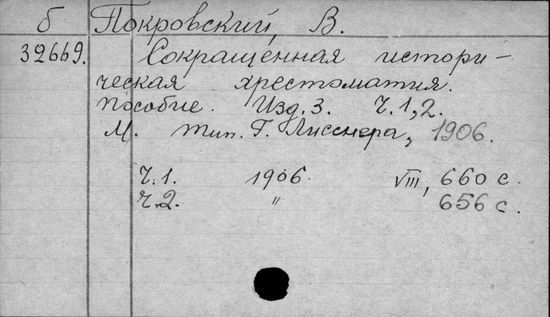 б Покровский, В.
32669. Сокращенная истори-
ческая хрестоматия.
Пособие. Изд. 3. Ч. 1, 2.
М. Тип. Г. Лисснера, 1906.
Ч. 1. 1906. VIII, 660 с.
Ч. 2. " 656 с.